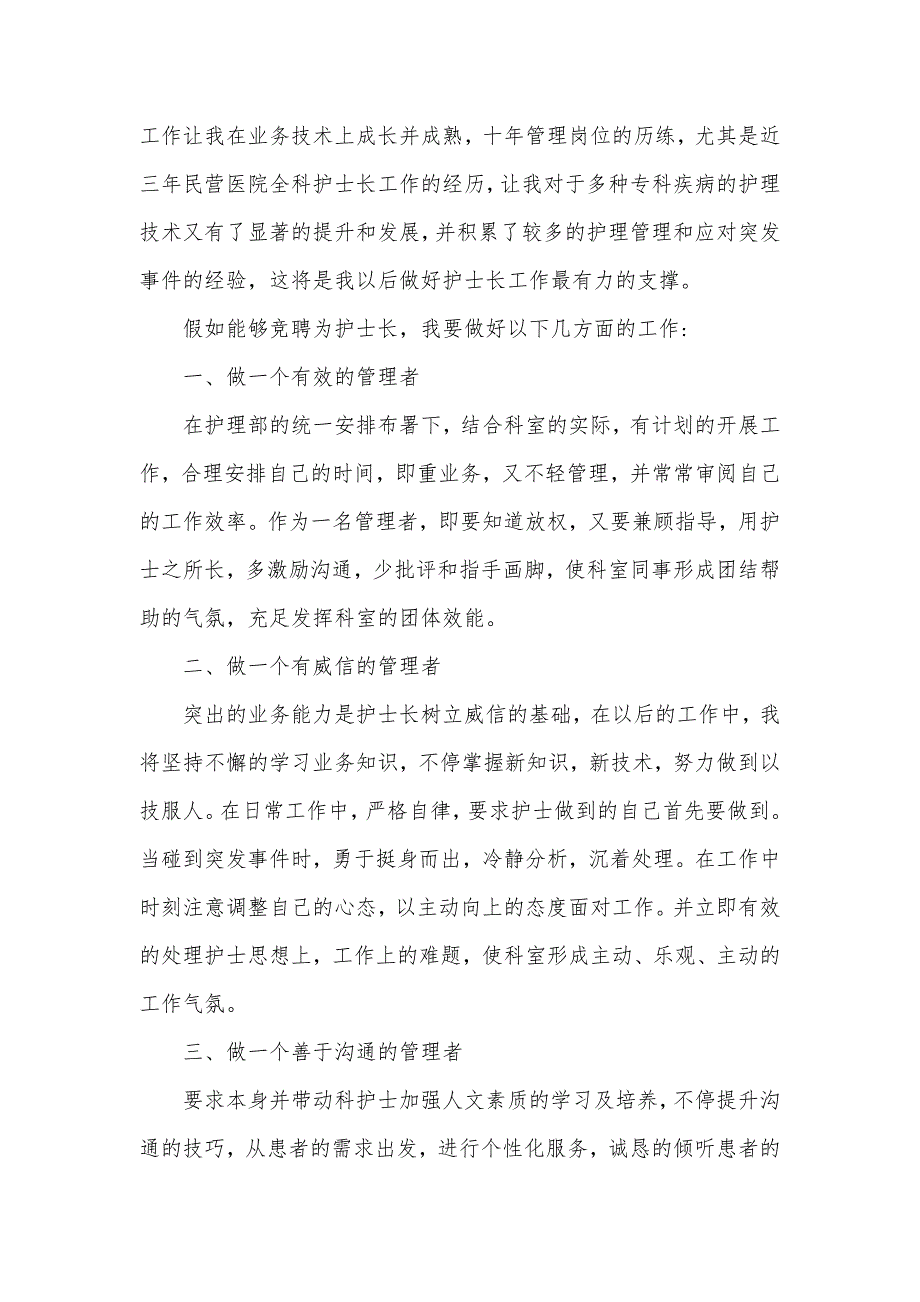 工作让我在业务技术上成长并成熟，十年管理岗位的历练，尤其是近
三年民营医院全科护士长工作的经历，让我对于多种专科疾病的护理
技术又有了显著的提升和发展，并积累了较多的护理管理和应对突发
事件的经验，这将是我以后做好护士长工作最有力的支撑。
假如能够竞聘为护士长，我要做好以下几方面的工作:
一、做一个有效的管理者
在护理部的统一安排布署下，结合科室的实际，有计划的开展工
作，合理安排自己的时间，即重业务，又不轻管理，并常常审阅自己
的工作效率。作为一名管理者，即要知道放权，又要兼顾指导，用护
士之所长，多激励沟通，少批评和指手画脚，使科室同事形成团结帮
助的气氛，充足发挥科室的团体效能。
二、做一个有威信的管理者
突出的业务能力是护士长树立威信的基础，在以后的工作中，我
将坚持不懈的学习业务知识，不停掌握新知识，新技术，努力做到以
技服人。在日常工作中，严格自律，要求护士做到的自己首先要做到。
当碰到突发事件时，勇于挺身而出，冷静分析，沉着处理。在工作中
时刻注意调整自己的心态，以主动向上的态度面对工作。并立即有效
的处理护士思想上，工作上的难题，使科室形成主动、乐观、主动的
工作气氛。
三、做一个善于沟通的管理者
要求本身并带动科护士加强人文素质的学习及培养，不停提升沟
通的技巧，从患者的需求出发，进行个性化服务，诚恳的倾听患者的